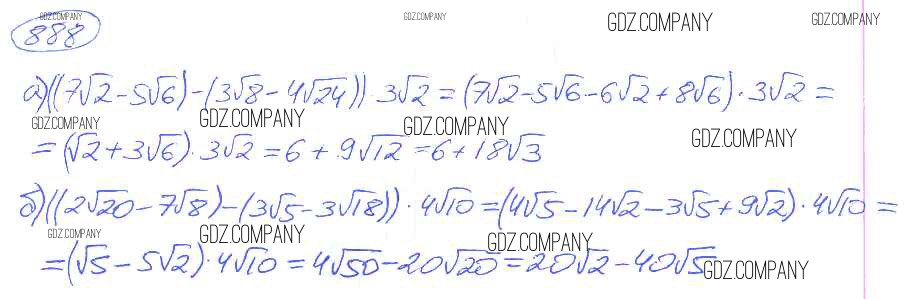 GDZ.COMPANY GDZ.COMPANY GDZ.COMPANY GDZ.COMPANY
888
а) ((7√2 - 5√6) - (3√8 - 4√24)) · 3√2 = (7√2 - 5√6 - 6√2 + 8√6) · 3√2 =
GDZ.COMPANY GDZ.COMPANY GDZ.COMPANY GDZ.COMPANY
= (√2 + 3√6) · 3√2 = 6 + 9√12 = 6 + 18√3
б) ((2√20 - 7√8) - (3√5 - 3√18)) · 4√10 = (4√5 - 14√2 - 3√5 + 9√2) · 4√10 =
GDZ.COMPANY GDZ.COMPANY GDZ.COMPANY GDZ.COMPANY
= (√5 - 5√2) · 4√10 = 4√50 - 20√20 = 20√2 - 40√5